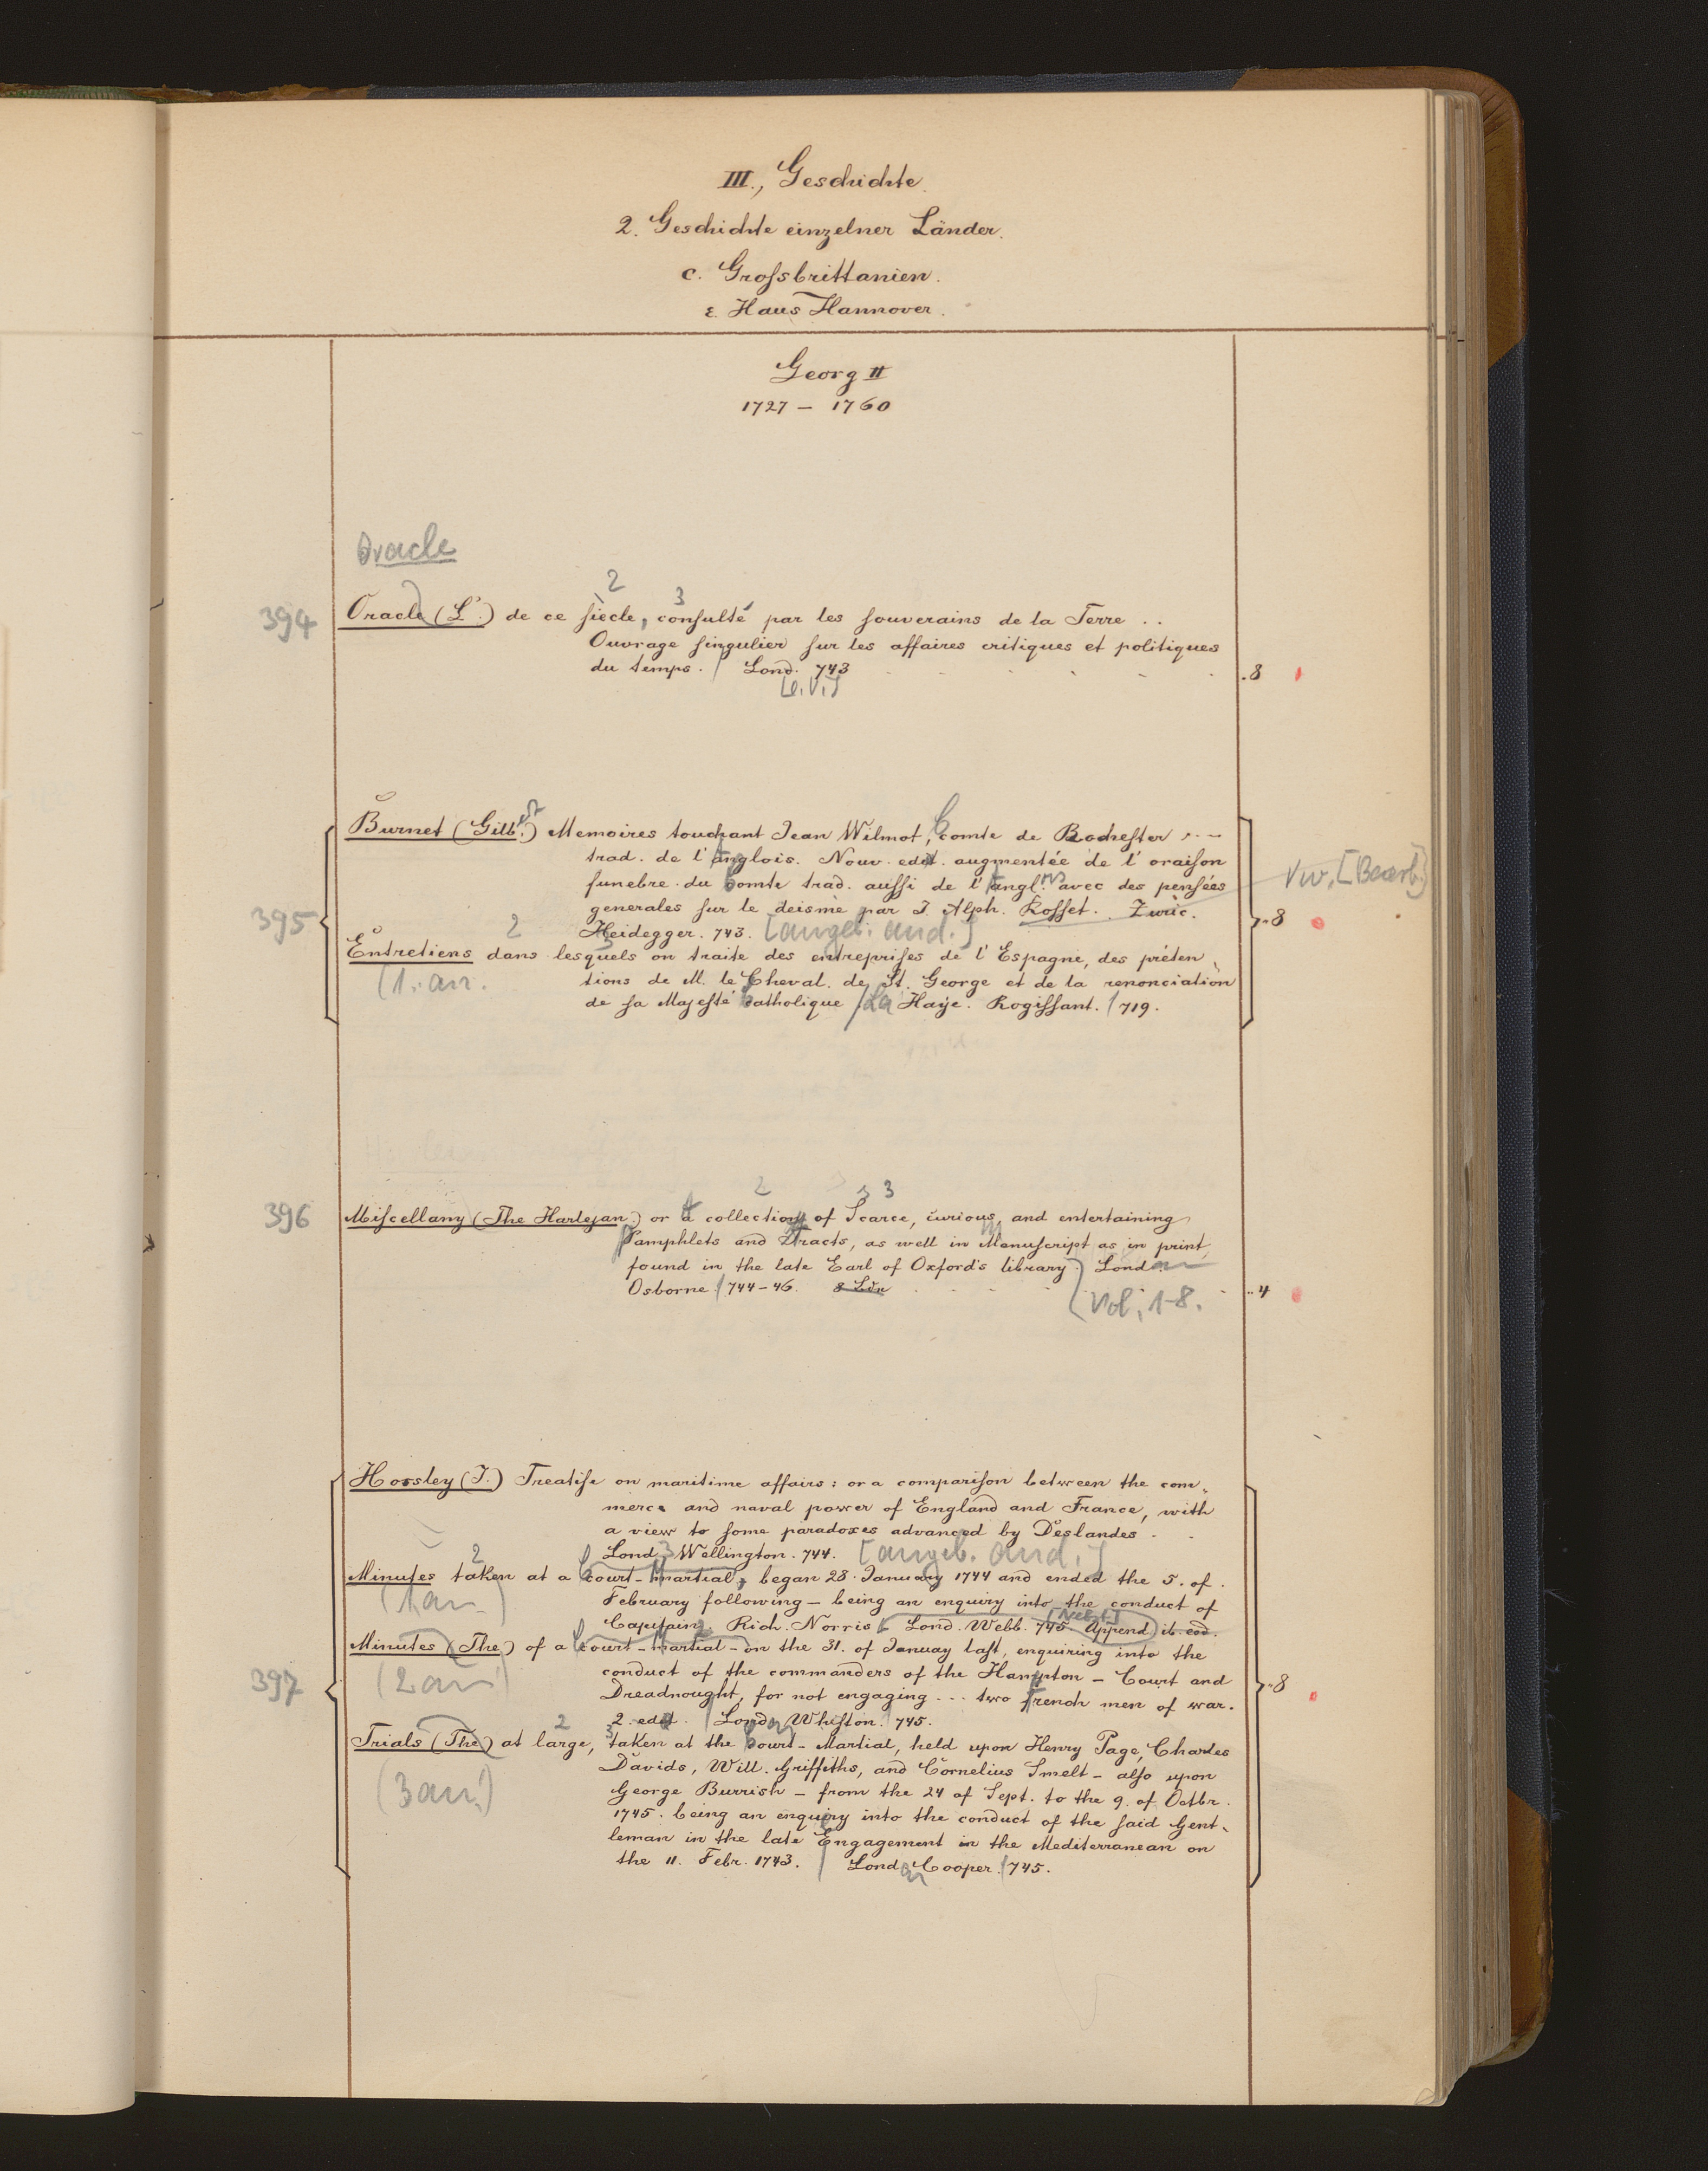 III., Geschichte.
2. Geschichte einzelner Länder.
c. Großbrittanien.
ε. Haus Hannover.
Georg II
1727 – 1760
Oracle
2
3
394 Oracle (L'.) de ce siecle, consulté par les souverains de la Terre . .
Ouvrage singulier sur les affaires critiques et politiques
du temps. / Lond. 743 . . . . . 8
Burnet (Gilb.) Memoires touchant Jean Wilmot, Comte de Rochester . . .
trad. de l'anglois. Nouv. edit. augmentée de l'oraison
funebre du Comte trad. aussi de l'angl. avec des pensées
Vw. [Bearb.]
generales sur le deisme par J. Alph. Rosset. Zuric.
395 Heidegger. 743. [angeb. and.] 8
2
Entretiens dans lesquels on traite des entreprises de l'Espagne, des préten-
(1. an. tions de M. le Cheval. de St. George et de la renonciation
de sa Majesté Catholique / La Haÿe. Rogissant. / 719.
2 3 3
396 Miscellany (The Harlejan.) or a collection of Scarce, curious, and entertaining
Pamphlets and Tracts, as well in Manuscript as in print,
found in the late Earl of Oxford's library.) London
Osborne / 744–46. 8 Bde . . . . 4
Vol. 1-8.
Horsley (J.) Treatise on maritime affairs: or a comparison between the com-
merce and naval power of England and France, with
a view to some paradoxes advanced by Deslandes . .
Lond. Wellington. 744. [angeb. and.]
2
Minutes taken at a Court-Martial, began 28. January 1744 and ended the 5. of
(1 an.) February following – being an enquiry into the conduct of
[Nebst]
Capitain. Rich. Norris Lond. Webb. 745. Append. ib. eod.
Minutes (The) of a Court-Martial – on the 31. of Januay last, enquiring into the
(2 an.) conduct of the commanders of the Hampton – Court and
397 Dreadnought, for not engaging . . . two french men of war. 8
2. edit. / London Whiston. / 745.
2
Trials (The) at large, taken at the Court-Martial, held upon Henry Page, Charles
Davids, Will. Griffiths, and Cornelius Smelt – also upon
(3 an.) George Burrish – from the 24 of Sept. to the 9. of Octbr.
1745. being an enquiry into the conduct of the said Gent-
leman in the late Engagement in the Mediterranean on
the 11. Febr. 1743. / London Cooper. / 745.